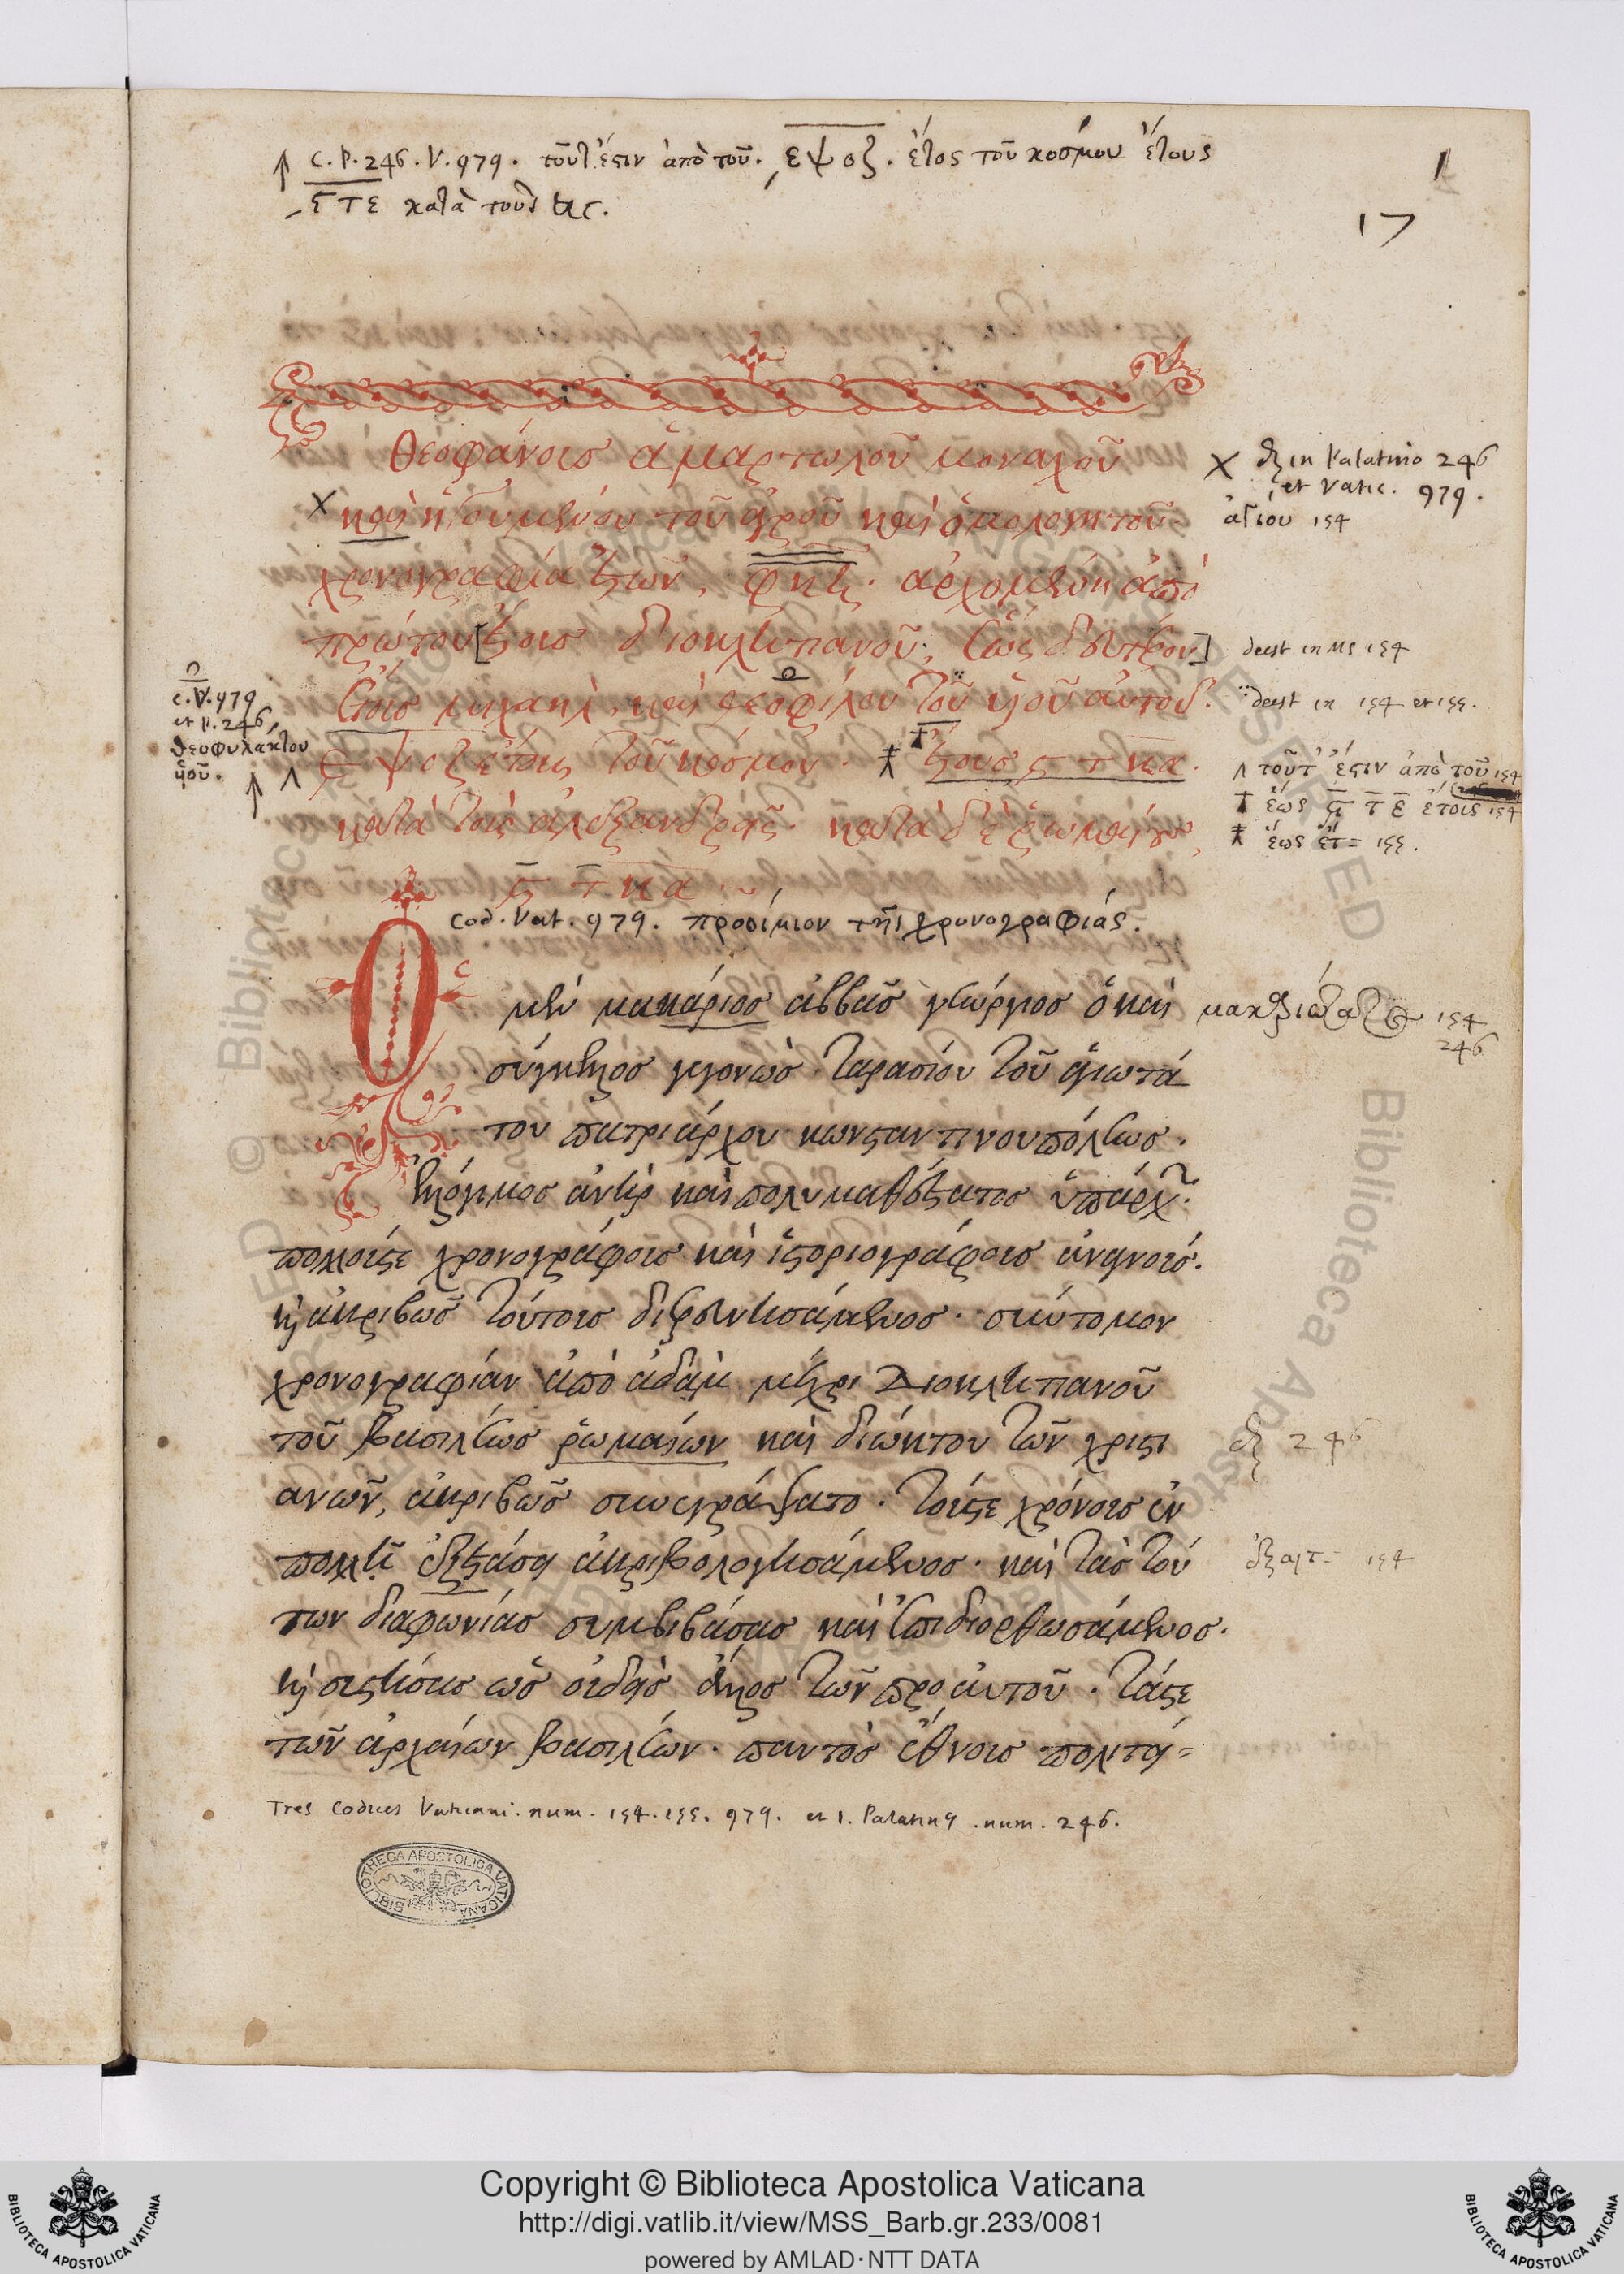 C. P. 246. V. 979. τοῦτ' ἔστιν ἀπὸ τοῦ. ͵εψοζ. ἔτος τοῦ κόσμου ἔτους
͵ςτε κατὰ τοὺς &c.
1
17
Θεοφάνους ἁμαρτωλοῦ μοναχοῦ
καὶ ἡγουμένου τοῦ ἀγροῦ καὶ ὁμολογητοῦ
χρονογραφία ἐτῶν, φκη. ἀρχομένη ἀπὸ
πρώτου [ἔτους διοκλητιανοῦ, ἕως δευτέρου]
ἔτους μιχαὴλ, καὶ θεοφίλου τοῦ υἱοῦ αὐτοῦ.
͵εψοζ ἔτους τοῦ κόσμου. ἔτους ςτκα.
κατὰ τοὺς ἀλεξανδρεῖς. κατὰ δὲ ῥωμαίους,
ςτκα
X in Palatino 246
et Vatic. 979.
ἁγίου 154
deest in MS 154
deest in 154 et 155.
Λ τοῦτ' ἔστιν ἀπὸ τοῦ 154
ἕως ς τ ε ἔτους 154
ἕως ἔτ= 155.
c. V. 979
et P. 246,
θεοφυλάκτου
ὑιοῦ.
Cod. Vat. 979. προοίμιον τῆς χρονογραφίας.
Ὁ μὲν μακάριος ἀββᾶς γεώργιος ὁ καὶ
σύγκελλος γεγονὼς ταρασίου τοῦ ἁγιωτά
του πατριάρχου κωνσταντινουπόλεως.
ἐλλόγιμος ἀνὴρ καὶ πολυμαθέστατος ὑπάρχ.
πολλούς τε χρονογράφους καὶ ἱστοριογράφους ἀναγνούς.
καὶ ἀκριβῶς τούτους διερευνησάμενος. σύντομον
χρονογραφίαν ἀπὸ ἀδὰμ μέχρι Διοκλητιανοῦ
τοῦ βασιλέως ῥωμαίων καὶ διώκτου τῶν χριστι
ανῶν, ἀκριβῶς συνεγράψατο. τούς τε χρόνους ἐν
πολλῇ ἐξετάσει ἀκριβολογησάμενος. καὶ τὰς τού
των διαφωνίας συμβιβάσας καὶ ἐπιδιορθωσάμενος.
καὶ συστήσας ὡς οὐδεὶς ἄλλος τῶν πρὸ αὐτοῦ. τάς τε
τῶν ἀρχαίων βασιλέων. παντὸς ἔθνους πολιτεί=
154
246
246
154
Tres Codices Vaticani. num. 154. 155. 979. et 1. Palatinus. num. 246.
BIBLIOTHECA APOSTOLICA VATICANA
Copyright © Biblioteca Apostolica Vaticana
http://digi.vatlib.it/view/MSS_Barb.gr.233/0081
powered by AMLAD·NTT DATA
BIBLIOTECA APOSTOLICA VATICANA
BIBLIOTECA APOSTOLICA VATICANA